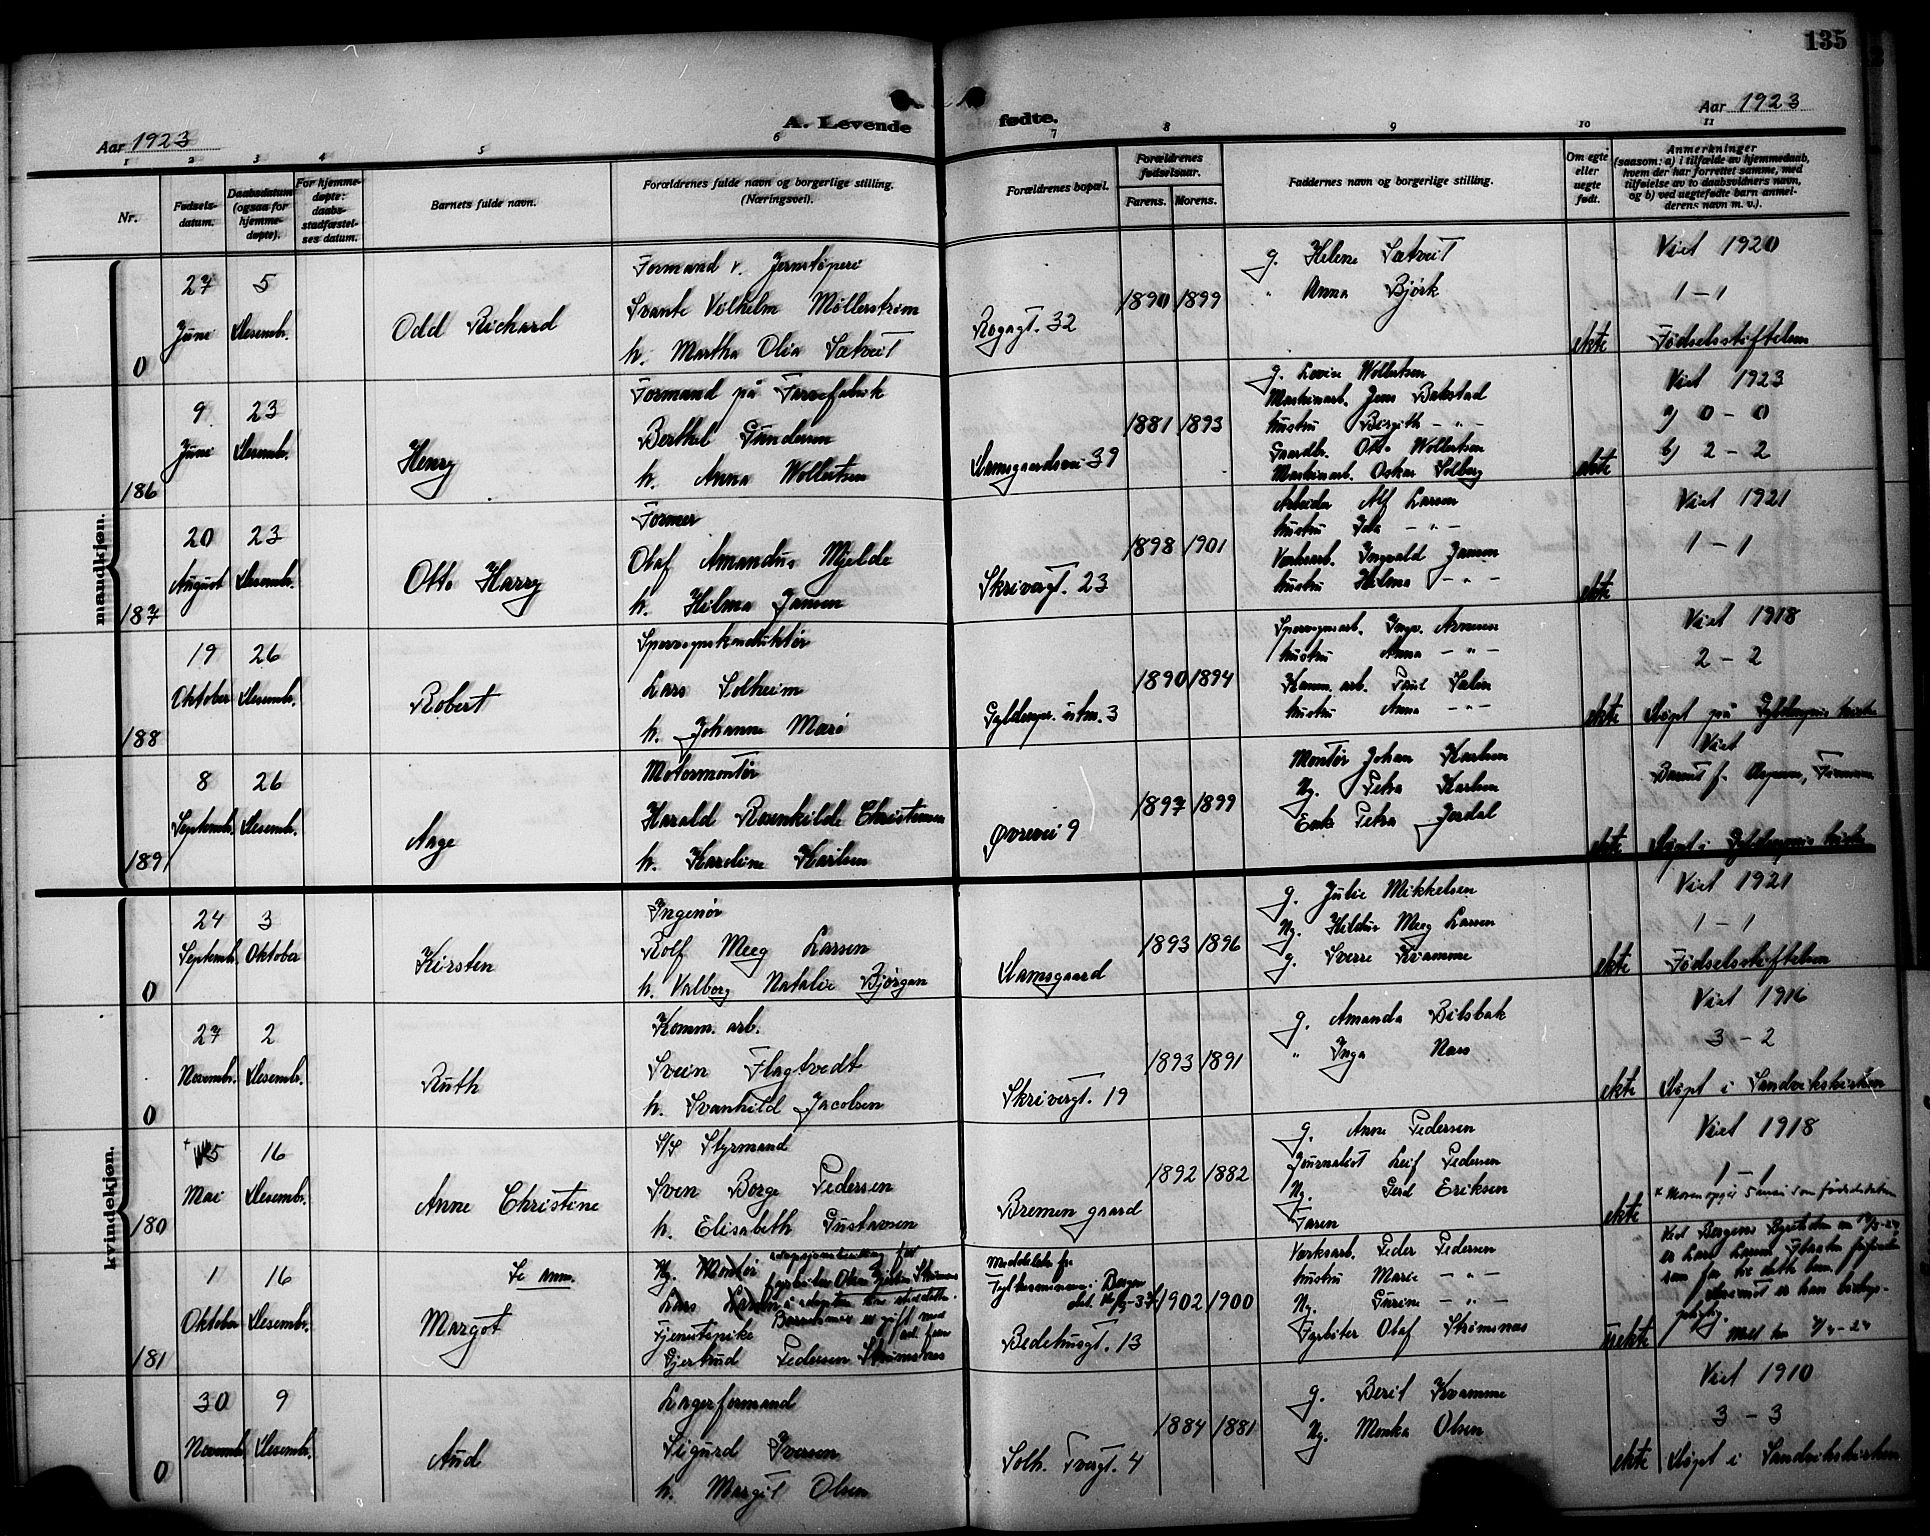 135
Aar 1923
A. Levende
fødte.
Aar 1923
1 2 3 4 5 6 7 8 9 10 11
Nr.
Fødsels-
datum.
Daabsdatum
(ogsaa for
hjemme-
døpte).
For hjemme-
døpte:
daabs-
stadfæstel-
ses datum.
Barnets fulde navn.
Forældrenes fulde navn og borgerlige stilling.
(Næringsvei).
Forældrenes bopæl.
Forældrenes
fødselsaar.
Farens. Morens.
Faddernes navn og borgerlige stilling.
Om egte
eller
uegte
født.
Anmerkninger
(saasom: a) i tilfælde av hjemmedaab,
hvem der har forrettet samme, med
tilføielse av to daabsvidners navn,
og b) ved uegtefødte barn anmel-
derens navn m. v.).
mandkjøn.
0
27
Juni
5
Desembr.
Odd Richard
Formand v. Jernstøperi
Svante Vilhelm Møllerstrøm
h. Martha Olia Sætveit
Rogagt. 32
1890 1899
g. Helene Sætveit
" Anna Bjørk
ekte
Viet 1920
1 - 1
Fødselsstiftelsen
186
9
Juni
23
Desembr.
Henry
Formand på Farvefabrik
Berthel Gundersen
h. Anna Wollertsen
Damsgaardsvei 39
1881 1893
g. Lovise Wollertsen
Maskinarb. Jens Bakstad
hustru Birgith - " -
Gaardbr. Otto Wollertsen
Maskinarb. Oskar Solberg
ekte
Viet 1923
a) 0 - 0
b) 2 - 2
187
20
August
23
Desembr.
Otto Harry
Former
Olaf Amandus Mjelde
h. Hilma Jansen
Skivergt. 23
1898 1901
Arbeider Alf Larsen
hustru Ida - " -
Verksarb. Ingvald Jansen
hustru Hilma - " -
ekte
Viet 1921
1 - 1
188
19
Oktober
26
Desembr.
Robert
Sporvognskonduktør
Lars Solheim
h. Johanne Marie
Gyldenpr. utm. 3
1890 1894
Sporvognsarb. Ingv. Arnesen
hustru Anna - " -
Komm. arb. Paul
hustru Anna - " -
ekte
Viet 1918
2 - 2
Døpt på Gyldenpris kirke
189
8
Septembr.
26
Desembr.
Aage
Motormontør
Harald Rosenkilde Christensen
h. Karoline Karlsen
Øvrevei 9
1897 1899
Montør Johan Karlsen
Ug. Petra Karlsen
Enke Petra Jordal
ekte
Viet
Døpt i Gyldenpris kirke
kvindekjøn.
0
24
Septembr.
3
Oktober
Kirsten
Ingeniør
Rolf Meeg Larsen
h. Valborg Natalie Bjørgan
Damsgaard
1893 1896
g. Julie Mikkelsen
Ug. Hildur Meeg Larsen
g. Sverre Kvamme
ekte
Viet 1921
1 - 1
Fødselsstiftelsen
0
27
Novembr.
2
Desembr.
Ruth
Komm. arb.
Svein Flagtvedt
h. Svanhild Jacobsen
Skivergt. 19
1893 1891
g. Amanda Bilsbak
" Inga Naes
ekte
Viet 1916
3 - 2
Døpt i Sandvikskirken
180
5
Mai
16
Desembr.
Anne Christine
D/S Styrmand
Sven Borge Pedersen
h. Elisabeth Gustavsen
Bremen gaard
1892 1882
g. Anne Pedersen
Journalist Leif Pedersen
Ug. Gerd Eriksen
Faren
ekte
Viet 1918
1 - 1
x Moren opgir 5 mai som fødselsdatum
181
1
Oktober
16
Desembr.
Se anm.
Margot
Ug. Montør
Lars
Tjenestepike
Gjertrud Pedersen Strømsnes
Meddelelse fr.
Bedehusgt. 13
1902 1900
Verksarb. Peder Pedersen
hustru Marie - " -
Ug. Gurine - " -
Fyrbøter Olaf Strømsnes
uekte
0
30
Novembr.
9
Desembr.
Aud
Lagerformand
Sigurd Iversen
h. Margit Olsen
Solh. Tvergt. 4
1884 1881
g. Berit Kvamme
Ug. Monka Olsen
ekte
Viet 1910
3 - 3
Døpt i Sandvikskirken